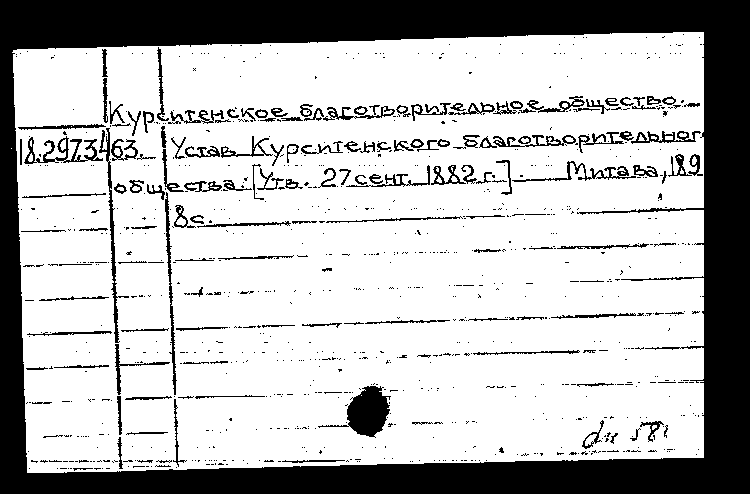 Курситенское благотворительное общество.
18.297.3.463. Устав Курситенского благотворительног
общества: [Утв. 27 сент. 1882 г.]. Митава, 189
8с.